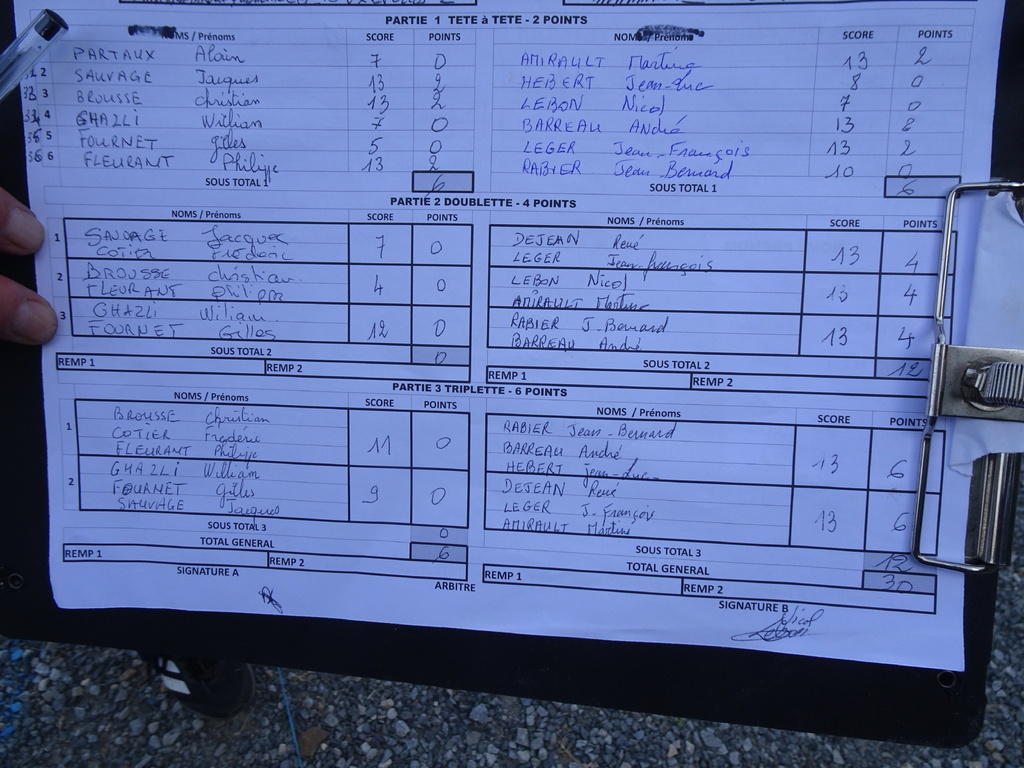 PARTIE 1 TETE à TETE - 2 POINTS
MS / Prénoms SCORE POINTS NOM Prénoms SCORE POINTS
PARTAUX Alain 7 0 AMIRAULT Martine 13 2
2 SAUVAGE Jacques 13 2 HEBERT Jean-Luc 8 0
3 BROUSSE christian 13 2 LEBON Nicol 7 0
4 GHAZLI William 7 0 BARREAU André 13 2
5 FOURNET gilles 5 0 LEGER Jean-François 13 2
6 FLEURANT Philippe 13 2 RABIER Jean Bernard 10 0
SOUS TOTAL 1 6 SOUS TOTAL 1 6
PARTIE 2 DOUBLETTE - 4 POINTS
NOMS / Prénoms SCORE POINTS NOMS / Prénoms SCORE POINTS
1 SAUVAGE Jacques 7 0 DEJEAN René 13 4
COTIER Frédéric LEGER Jean-françois
2 BROUSSE christian 4 0 LEBON Nicol 13 4
FLEURANT philippe AMIRAULT Martine
3 GHAZLI William 12 0 RABIER J-Bernard 13 4
FOURNET Gilles BARREAU André
SOUS TOTAL 2 0 SOUS TOTAL 2 12
REMP 1 REMP 2 REMP 1 REMP 2
PARTIE 3 TRIPLETTE - 6 POINTS
NOMS / Prénoms SCORE POINTS NOMS / Prénoms SCORE POINTS
1 BROUSSE christian 11 0 RABIER Jean-Bernard 13 6
COTIER Frédéric BARREAU André
FLEURANT Philippe HEBERT jean-Luc
2 GHAZLI William 9 0 DEJEAN René 13 6
FOURNET gilles LEGER J-François
SAUVAGE Jacques AMIRAULT Martine
SOUS TOTAL 3 0 SOUS TOTAL 3 12
TOTAL GENERAL 6 TOTAL GENERAL 30
REMP 1 REMP 2 REMP 1 REMP 2
SIGNATURE A ARBITRE SIGNATURE B
Nicol
Lebon